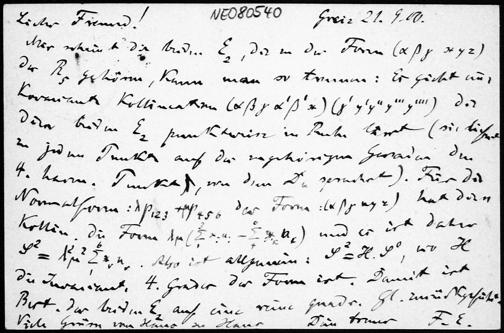 NE080540
Lieber Freund! Greiz 21. 9. 08.
Mir scheint die beiden E₂, die zu der Form (αβγ xyz)
der R₅ gehören, kann man so trennen: Es giebt eine
Kovariante Kollineation (αβγ α'β'x)(γ'y'y''y'''y'''') die
diese beiden E₂ punktweise in Ruhe lässt (sie liefert
zu jedem Punkte auf der zugehörigen Geraden den
4. harm. Punkt, von dem Du sprachst). Für die
Normalform: λp₁₂₃ + μp₄₅₆ der Form: (αβγ xyz) hat diese
Kollin. die Form λμ( ) und es ist daher
. Also ist allgemein: φ² = H.φ⁰, wo H
die Invariante 4. Grades der Form ist. Damit ist
Best. der beiden E₂ auf eine reine quadr. Gl. zurückgeführt.
Viele Grüsse von Haus zu Haus Dein treuer F. E.